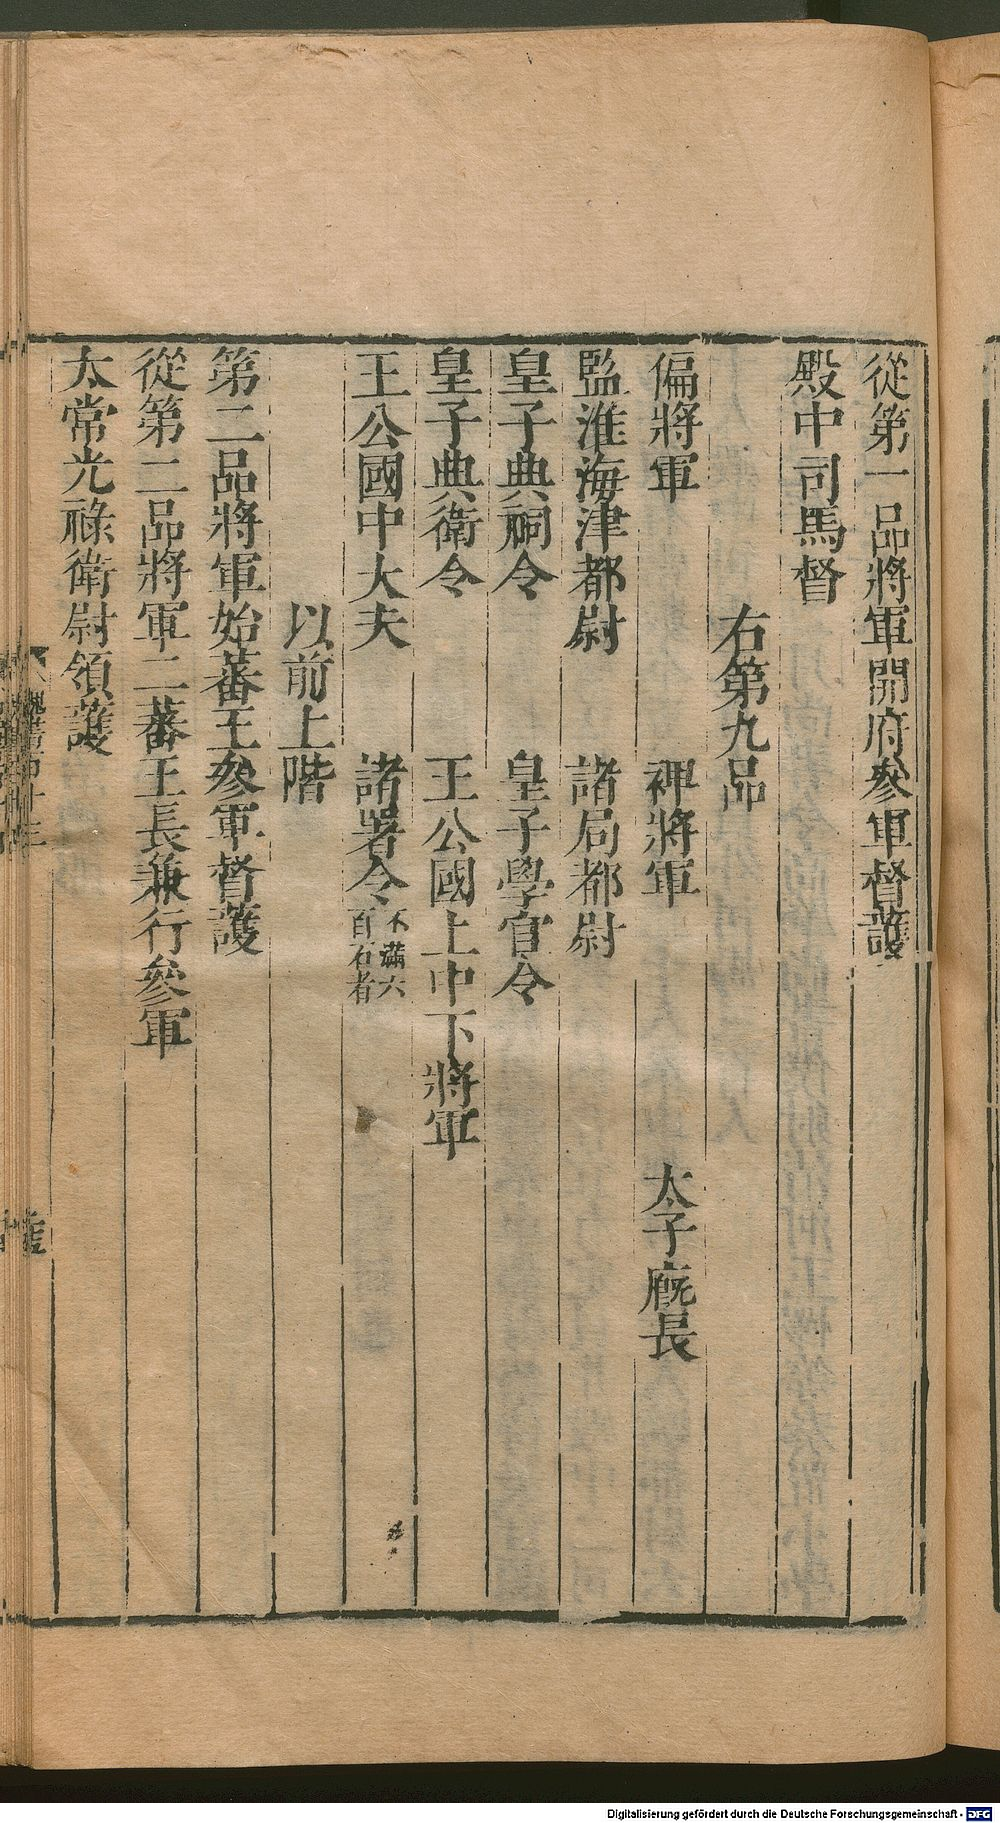 從第一品將軍開府參軍督護
殿中司馬督
右第九品
偏將軍　裨將軍　太子廐長
監淮海津都尉　諸局都尉
皇子典祠令　皇子學官令
皇子典衛令　王公國上中下將軍
王公國中大夫　諸署令不滿六百石者
以前上階
第二品將軍始蕃王參軍督護
從第二品將軍二蕃王長兼行參軍
太常光祿衛尉領護
Digitalisierung gefördert durch die Deutsche Forschungsgemeinschaft - DFG